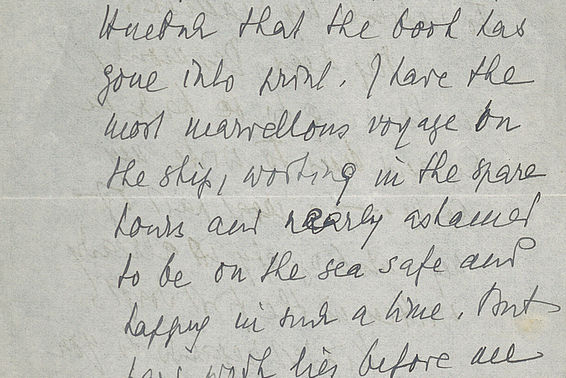 Huebsch that the book has
gone into print. I have the
most marvellous voyage on
the ship, working in the spare
hours and nearly ashamed
to be on the sea safe and
happy in such a time. But
work lies before all